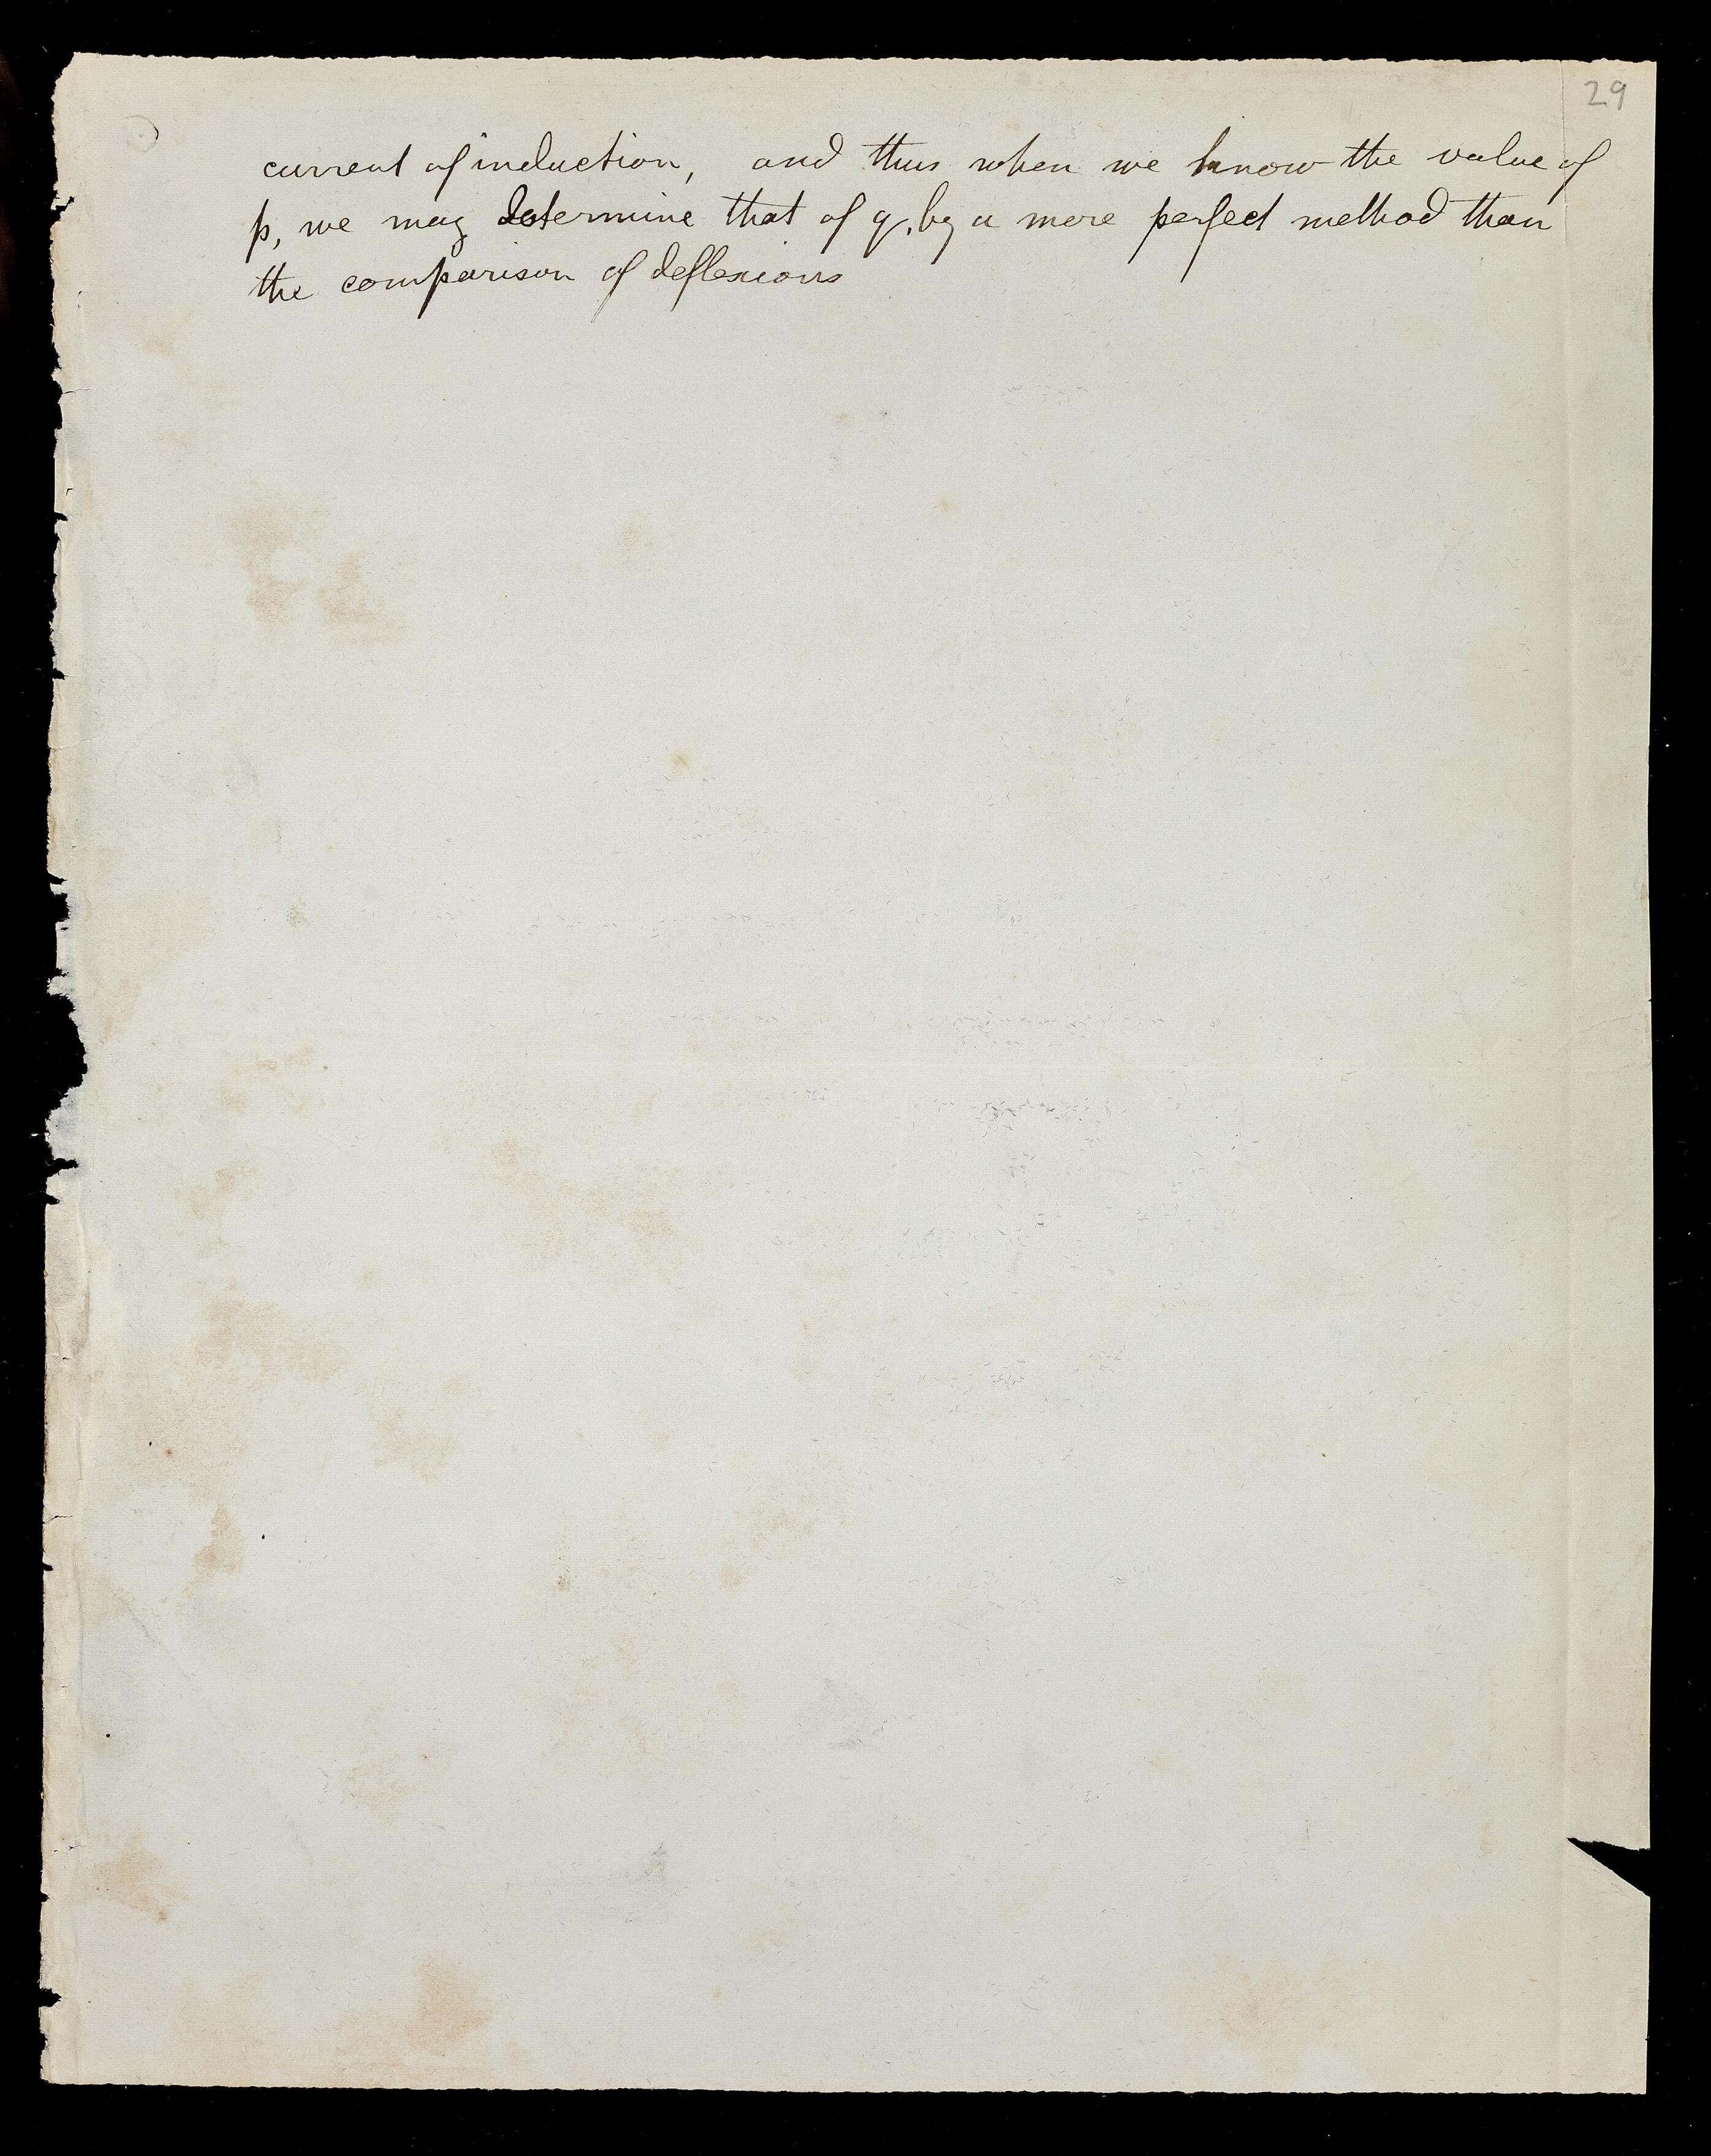 29
current of induction, and thus when we know the value of
p, we may determine that of q, by a more perfect method than
the comparison of deflexions